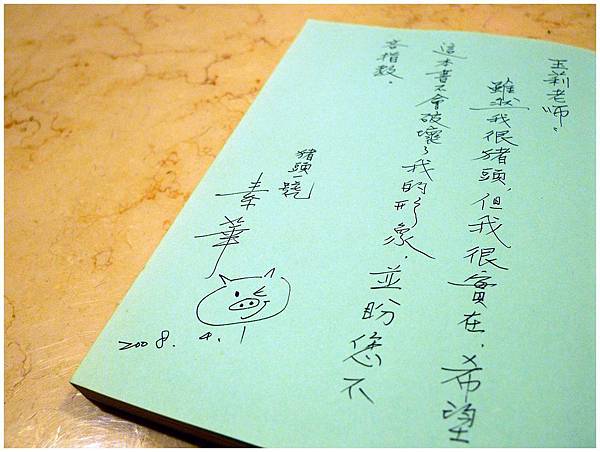 玉莉老師：
雖然我很豬頭，但我很實在，希望
這本書不會破壞了我的形象，並盼您不
吝指教．
豬頭一號
素華
2008.4.1